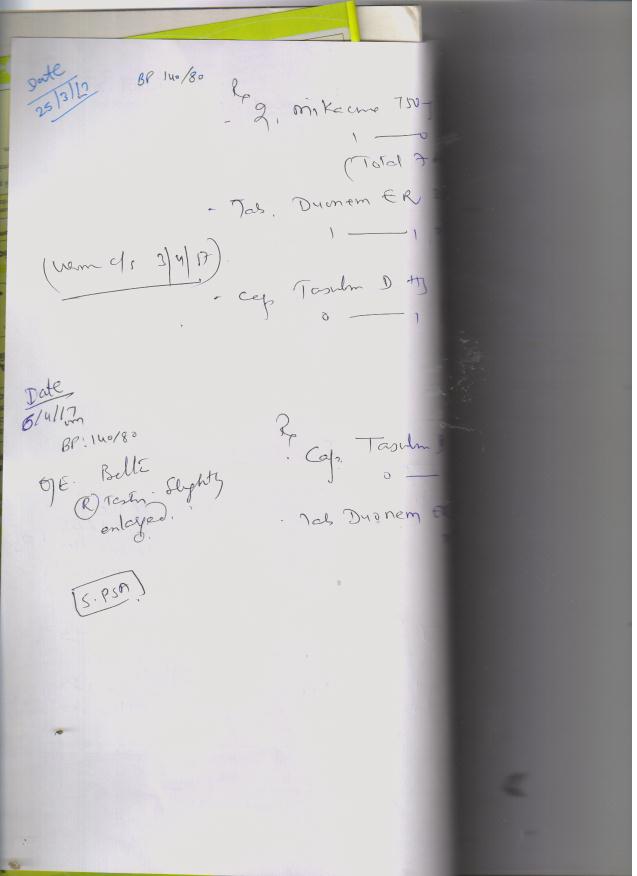 Date
25/3/17
BP 140/80
Rx
- 2. Mikacine 750
1 — 0
(Total 7
- Tab. Duonem ER
1 — 1
(Urine c/s 3/4/17)
- Cap Tasulin D
0 — 1
Date
6/4/17
BP: 140/80
O/E.
(R) Testis. Slightly
enlarged.
S. PSA
Rx
. Cap. Tasulin
0 —
. Tab Duonem ER